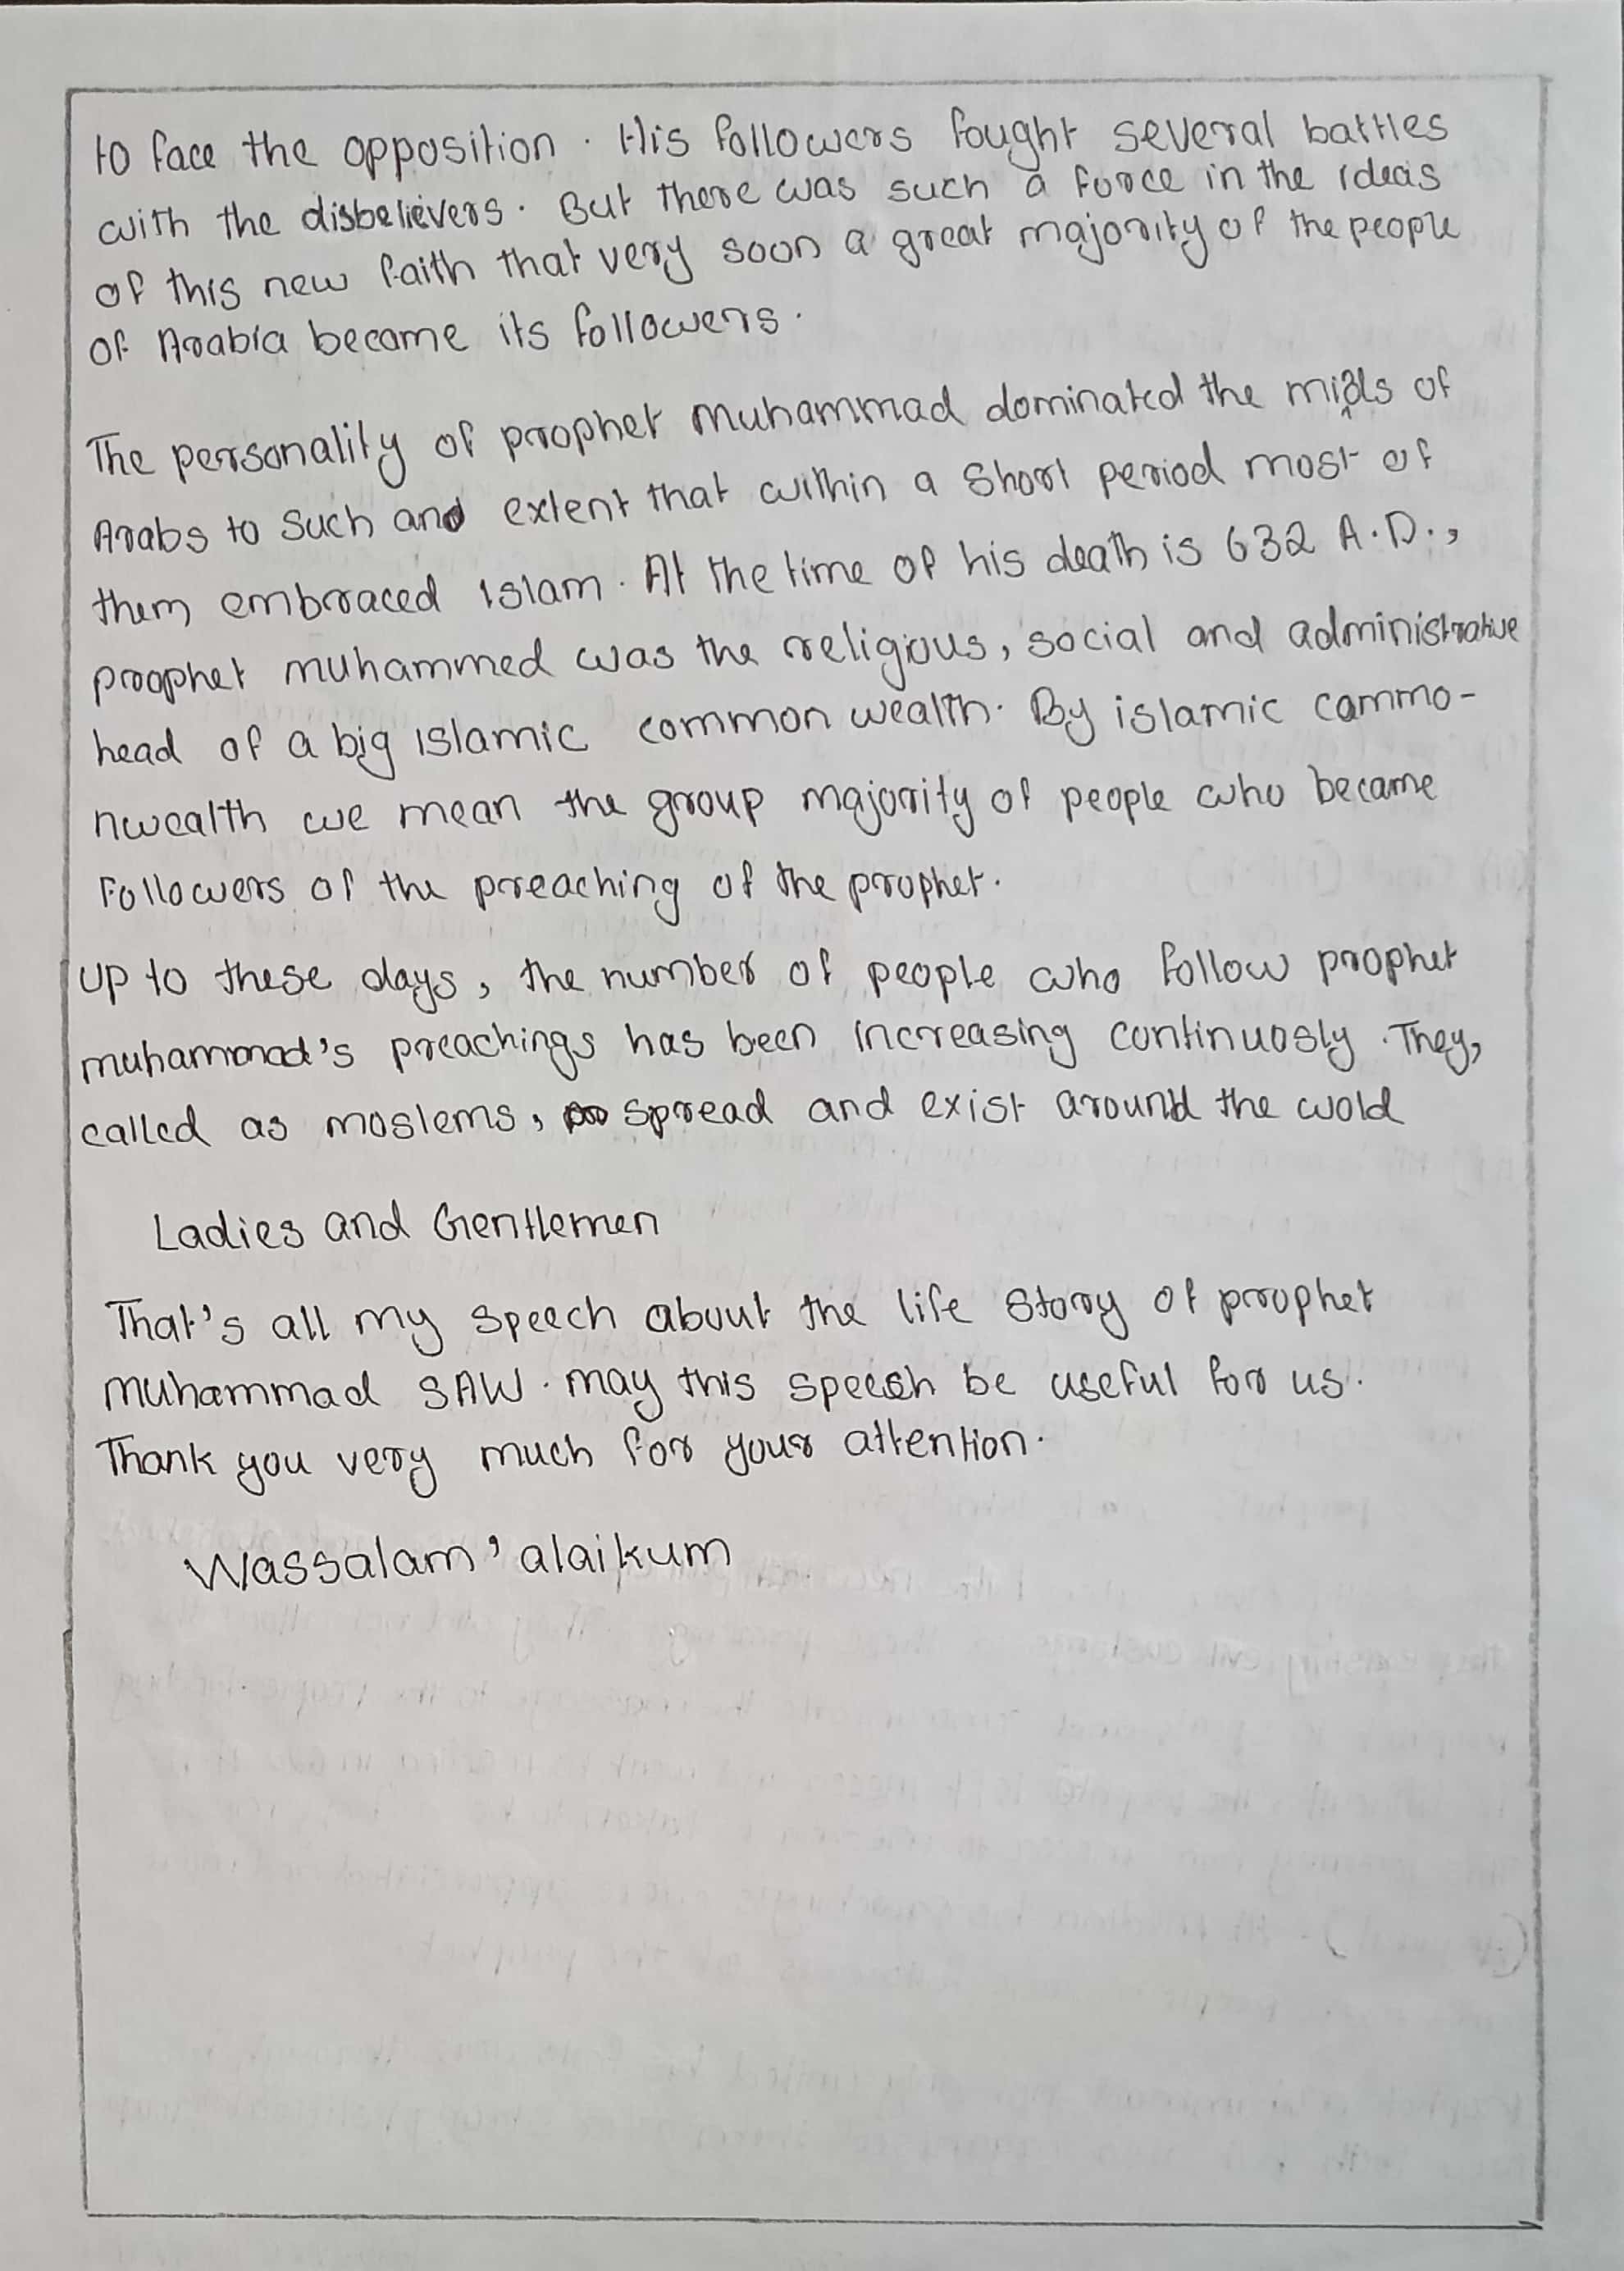 to face the opposition. His followers fought several battles
with the disbelievers. But there was such a force in the ideas
of this new faith that very soon a great majority of the people
of Arabia became its followers.
The personality of prophet muhammad dominated the minds of
Arabs to such and extent that within a short period most of
them embraced islam. At the time of his death is 632 A.D.,
prophet muhammed was the religious, social and administrative
head of a big islamic common wealth. By islamic commo-
nwealth we mean the group majority of people who became
followers of the preaching of the prophet.
up to these days, the number of people who follow prophet
muhammad's preachings has been increasing continuosly. They,
called as moslems, spread and exist around the wold
Ladies and Gentlemen
That's all my speech about the life story of prophet
muhammad SAW. may this speech be useful for us.
Thank you very much for your attention.
Wassalam 'alaikum